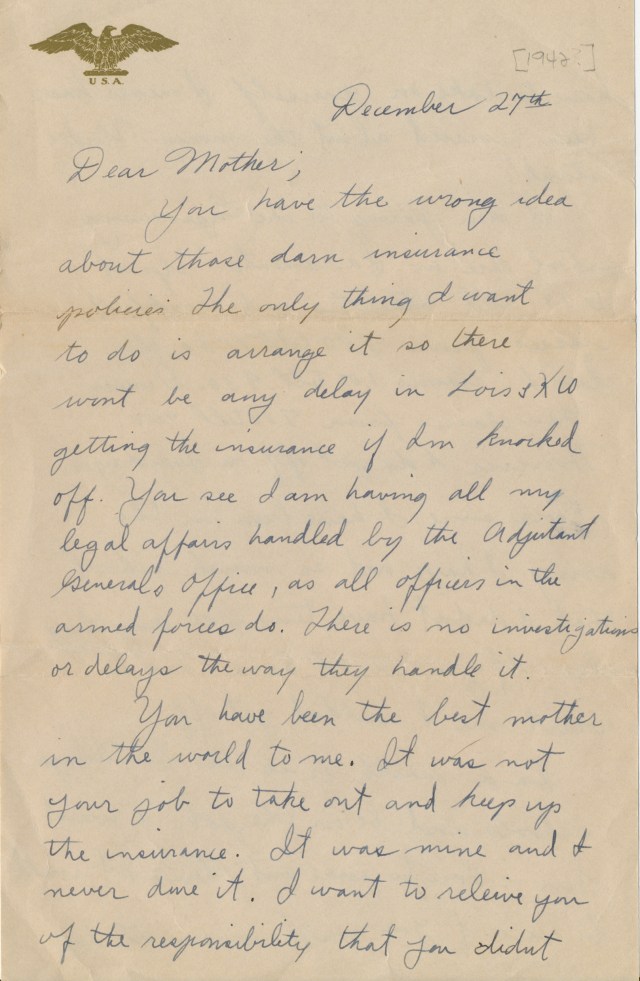 U.S.A.
[1942?]
December 27th
Dear Mother,
You have the wrong idea
about those darn insurance
policies The only thing I want
to do is arrange it so there
wont be any delay in Lois &
getting the insurance if Im knocked
off. You see I am having all my
legal affairs handled by the Adjutant
Generals Office, as all officers in the
armed forces do. There is no investigations
or delays the way they handle it.
You have been the best mother
in the world to me. It was not
your job to take out and keep up
the insurance. It was mine and I
never done it. I want to releive you
of the responsibility that you didnt